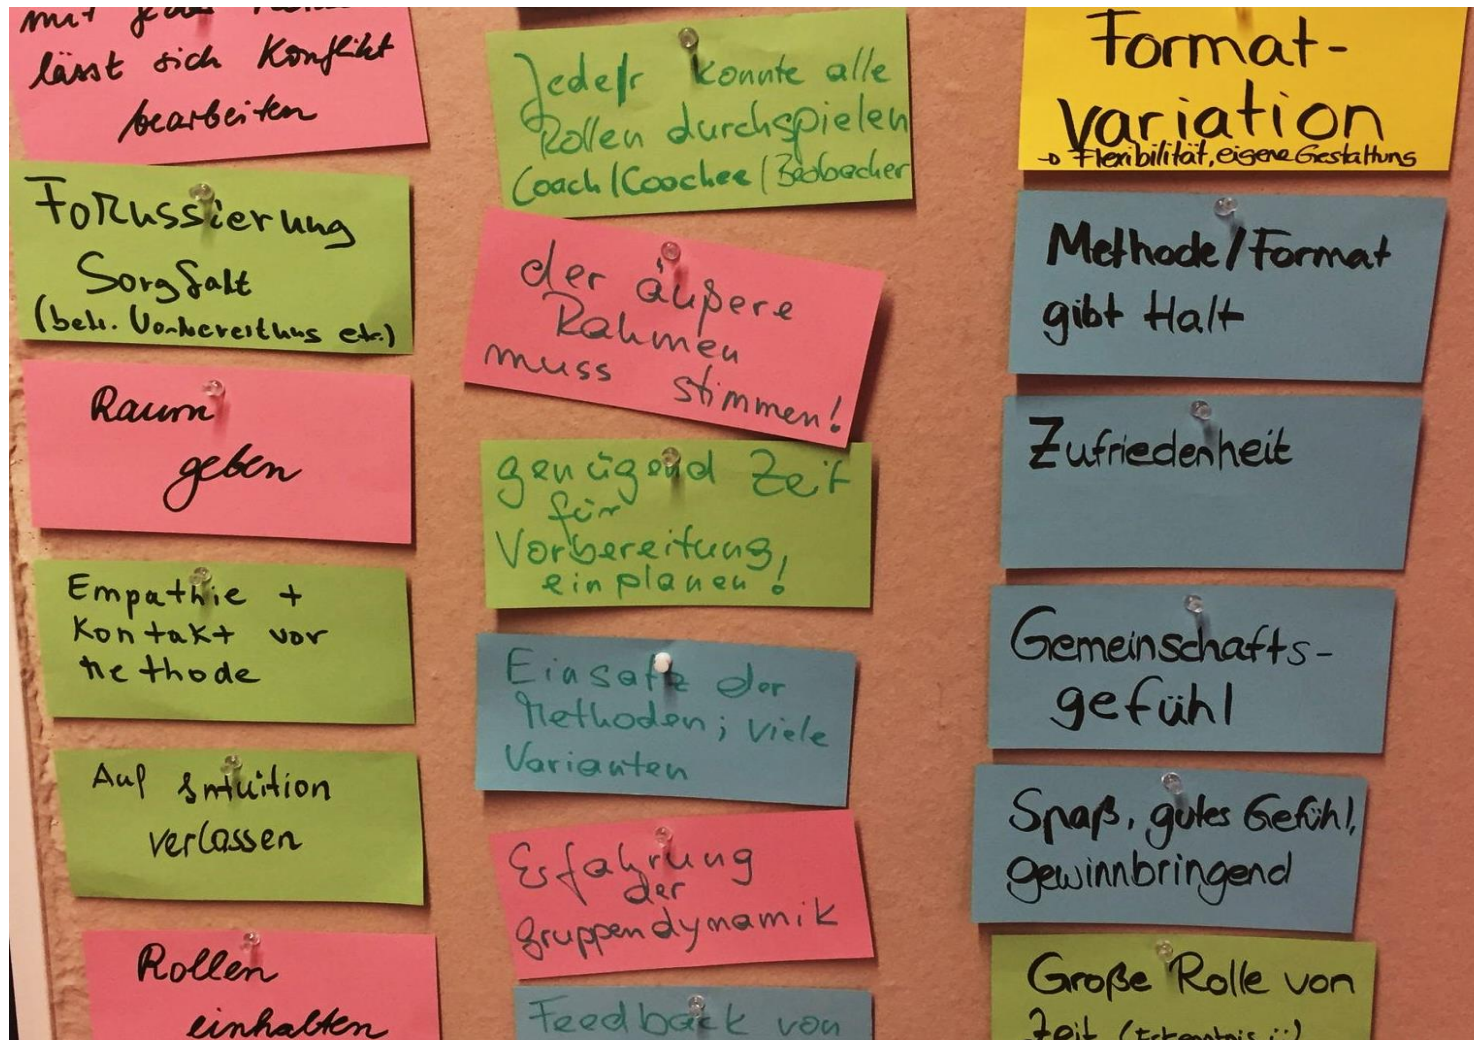 mit
lässt sich Konflikt
bearbeiten
Fokussierung
Sorgfalt
(beh. Vorbereitung etc.)
Raum
geben
Empathie +
Kontakt vor
Methode
Auf Intuition
verlassen
Rollen
einhalten
Jede/r konnte alle
Rollen durchspielen
Coach/Coochee/Beobacher
der äußere
Rahmen
muss stimmen!
genügend Zeit
für
Vorbereitung,
einplanen!
Einsatz der
Methoden; viele
Varianten
Erfahrung
der
gruppendynamik
Feedback von
Format-
variation
→ Flexibilität, eigene Gestaltung
Methode/Format
gibt Halt
Zufriedenheit
Gemeinschafts-
gefühl
Spaß, gutes Gefühl,
gewinnbringend
Große Rolle von
Zeit (Erkenntnis :))